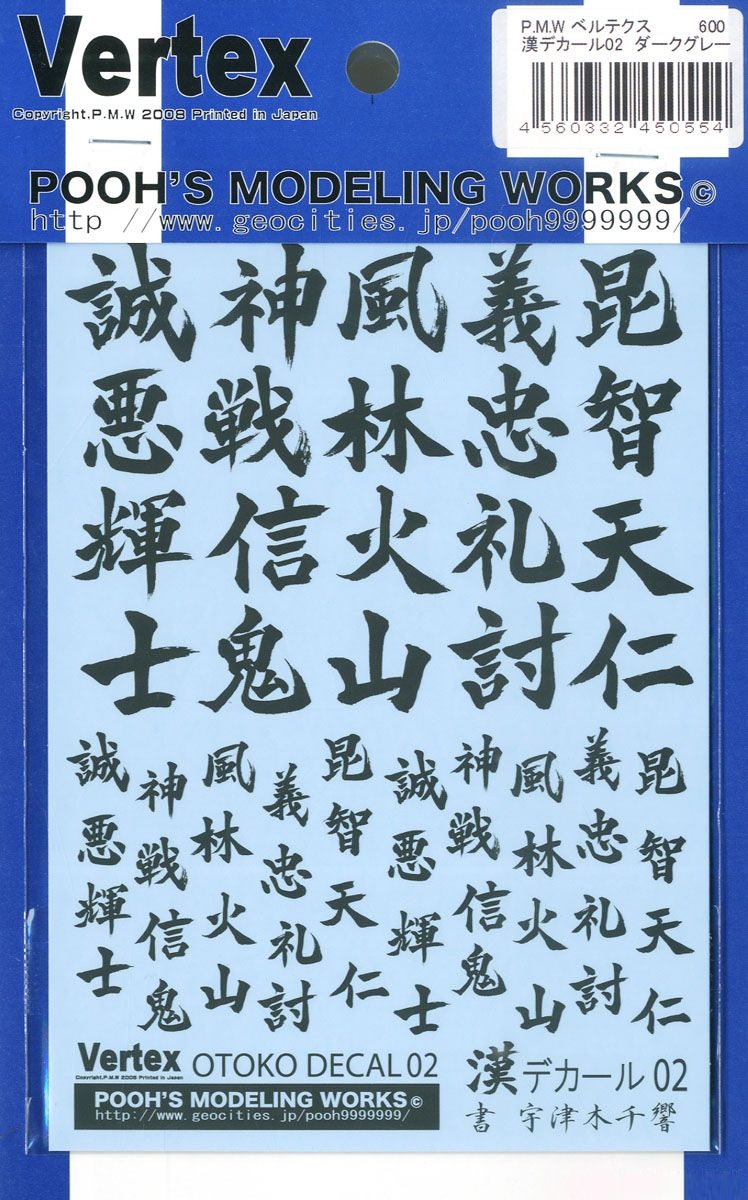 Vertex
Copyright.P.M.W 2008 Printed in Japan
P.M.W ベルテクス 600
漢デカール02 ダークグレー
4 560332 450554
POOH'S MODELING WORKS©
http //www.geocities.jp/pooh9999999/
誠 神 風 義 昆
悪 戦 林 忠 智
輝 信 火 礼 天
士 鬼 山 討 仁
誠 神 風 義 昆 誠 神 風 義 昆
悪 戦 林 忠 智 悪 戦 林 忠 智
輝 信 火 礼 天 輝 信 火 礼 天
士 鬼 山 討 仁 士 鬼 山 討 仁
Vertex OTOKO DECAL 02
Copyright.P.M.W 2008 Printed in Japan
POOH'S MODELING WORKS©
http://www.geocities.jp/pooh9999999/
漢デカール 02
書 宇津木千響